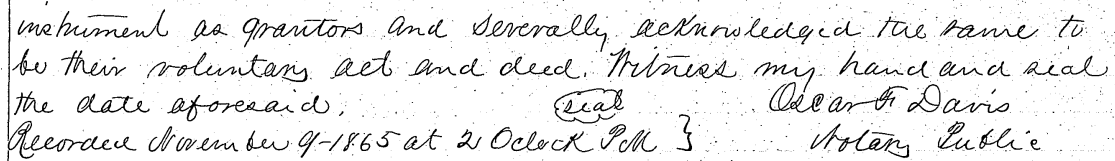 instrument as grantors and severally acknowledged the same to
be their voluntary act and deed. Witness my hand and seal
the date aforesaid. (seal) Oscar F Davis
Recorded November 9-1865 at 2 Oclock PM } Notary Public